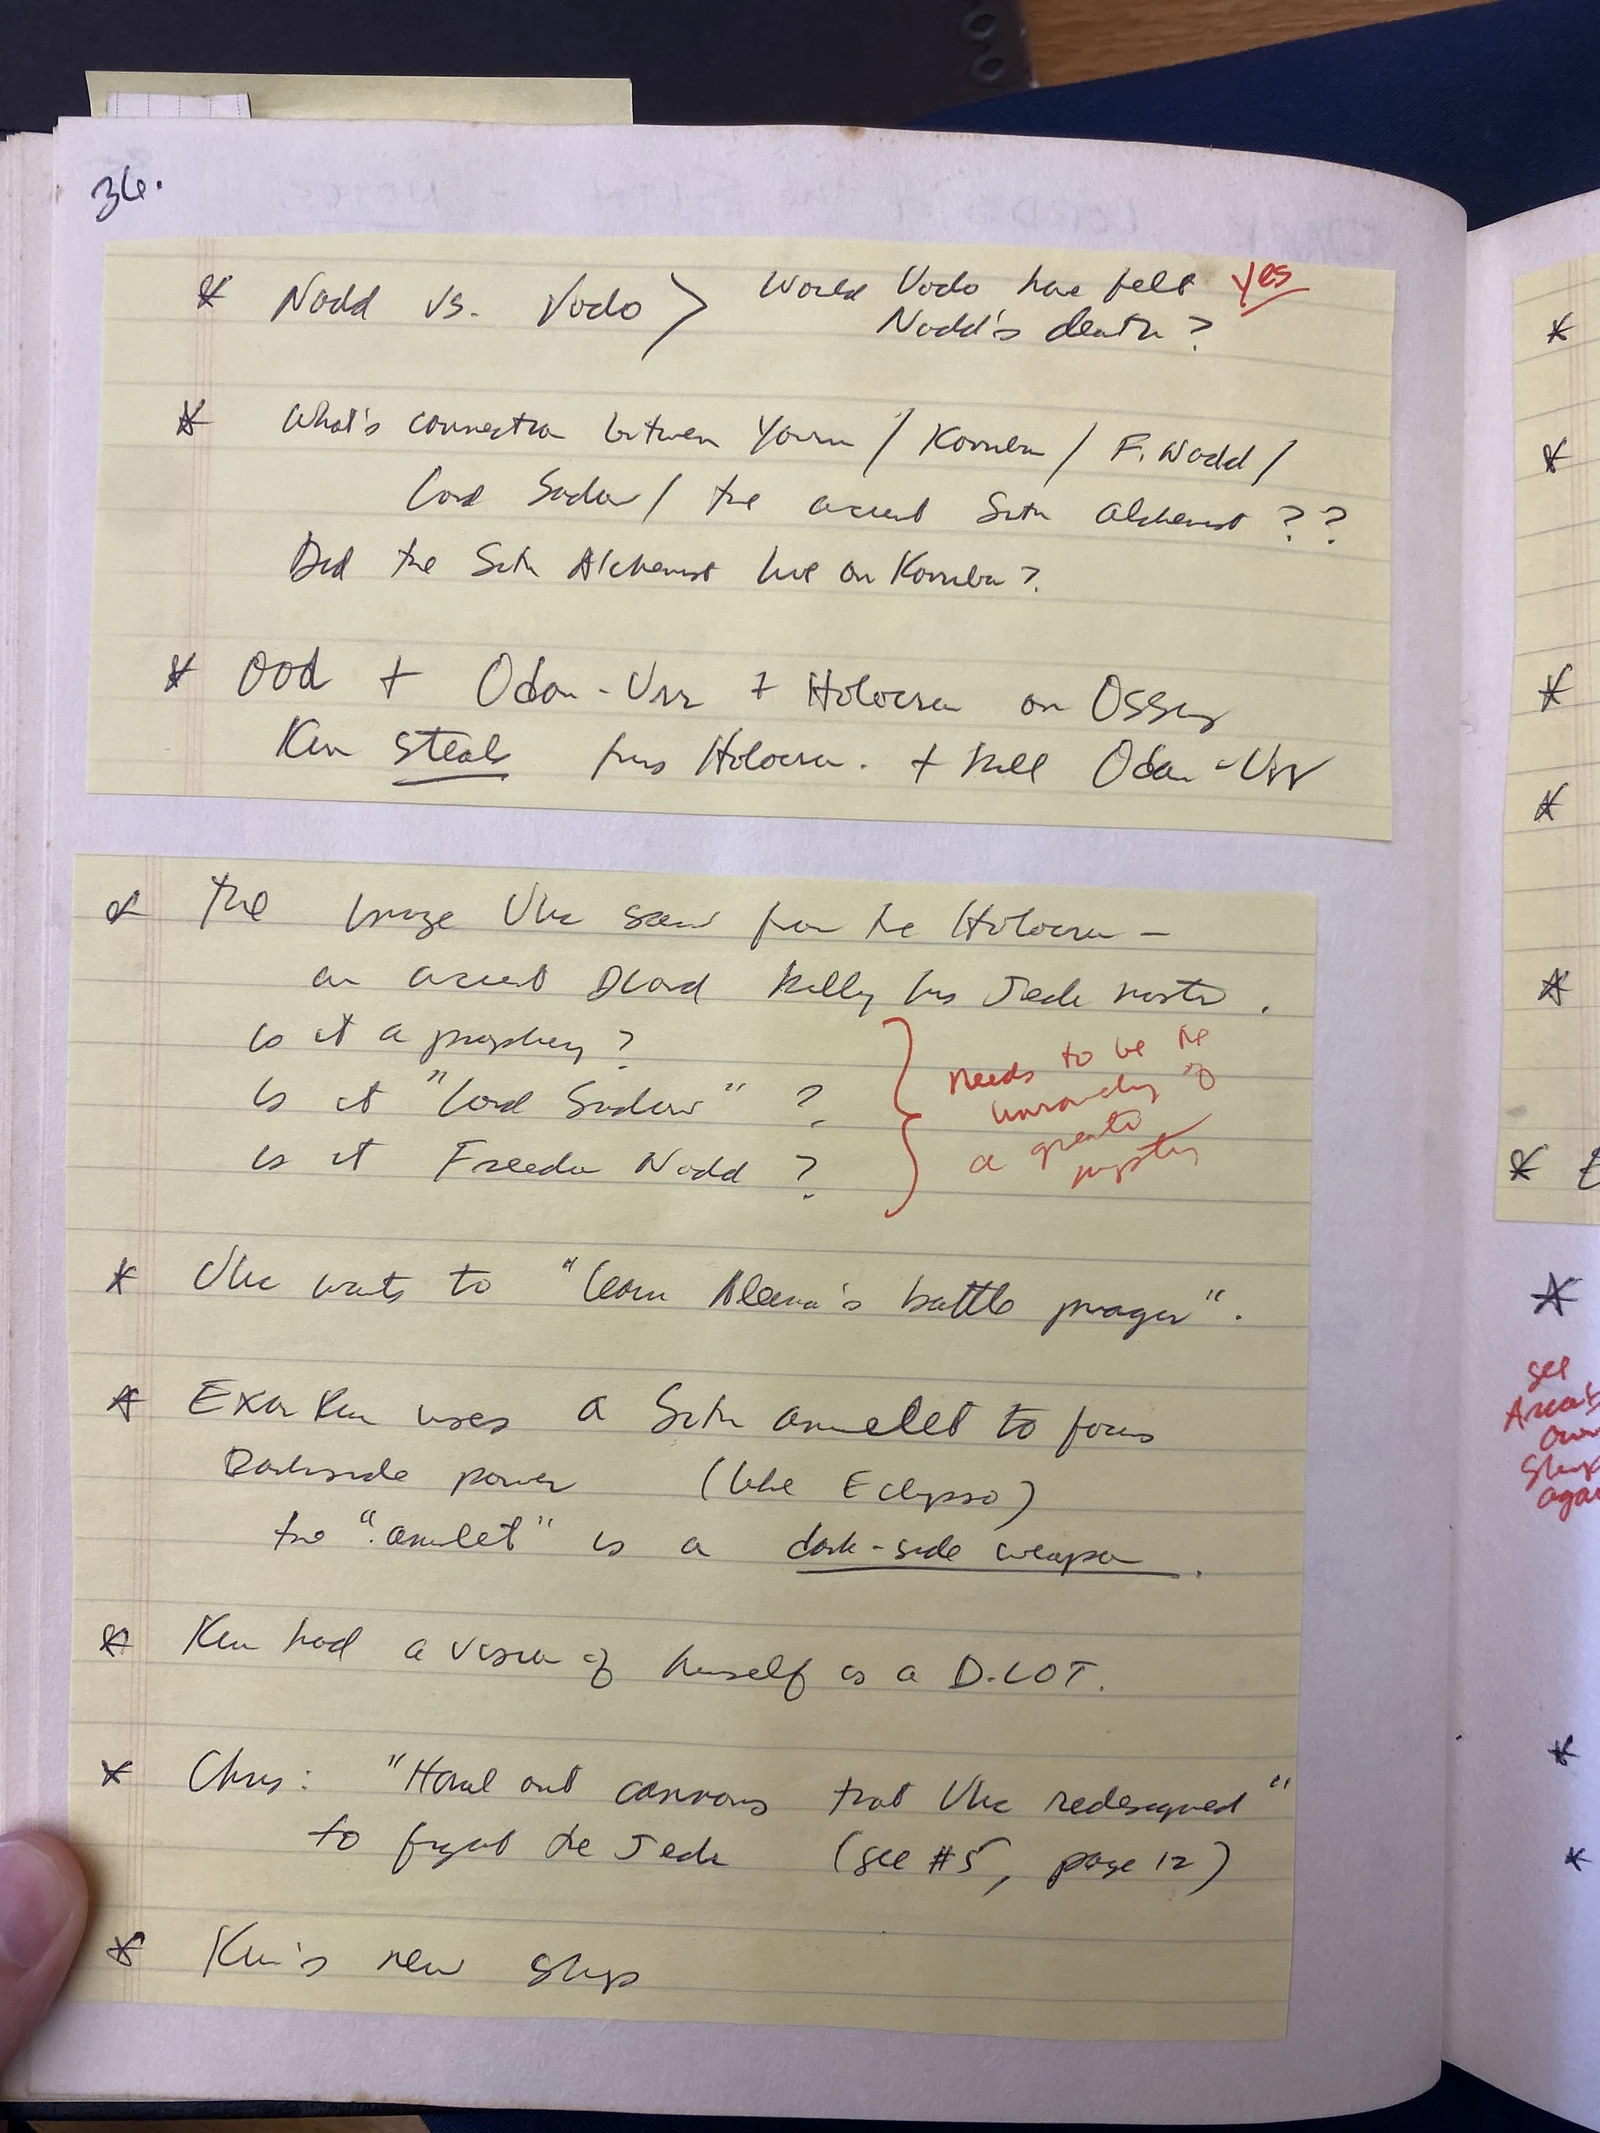 36.
* Nadd vs. Vodo > Would Vodo have felt Yes
Nadd's death?
* What's connection between Yavin / Korriban / F. Nadd /
Lord Sadow / the ancient Sith alchemist ??
Did the Sith Alchemist live on Korriban?
* Ood + Odan-Urr + Holocron on Ossus
Kun steals this Holocron. + kill Odan-Urr
* The image Ulic saw from the Holocron -
an ancient DLord killing his Jedi master.
Is it a prophecy?
Is it "Lord Sadow" ?
Is it Freedon Nadd ?
Needs to be the
unraveling of
a greater
mystery
* Ulic wants to "learn Aleema's battle prayer".
* Exar Kun uses a Sith amulet to focus
Darkside power (like Eclipso)
the "amulet" is a dark-side weapon.
* Kun had a vision of himself as a D.LOT.
* Chris: "Haul out cannons that Ulic redesigned"
to fight the Jedi (see #5, page 12)
* Kun's new ship
*
*
*
*
*
*
*
see
own
*
*